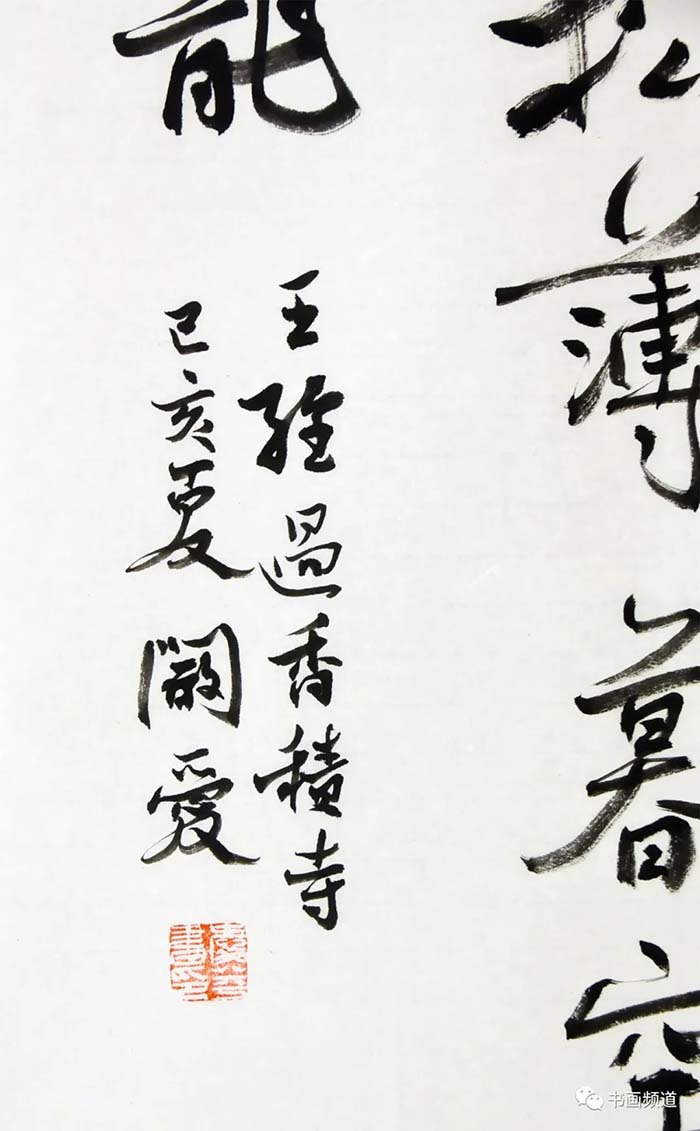 松薄暮空
龍
王維過香積寺
己亥夏 闞愛
书画频道